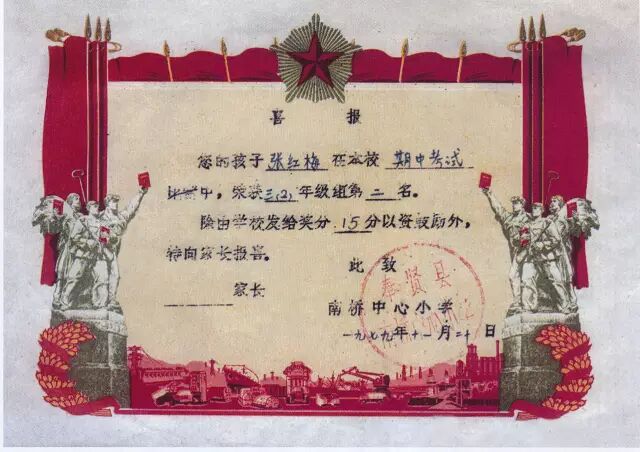 喜报
您的孩子 张红梅 在本校 期中考试
比赛中，荣获三(2)年级组第二名。
除由学校发给奖分 15分以资鼓励外，
特向家长报喜。
此致
家长
南桥中心小学
一九七九年十一月二十日
奉贤县